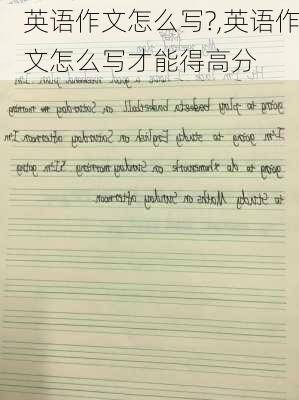 英语作文怎么写?,英语作
文怎么写才能得高分
going to play basketball on Saturday morning
I'm going to study English on Saturday afternoon. I'm
going to do homework on Sunday morning. I'm going
to study Maths on Sunday afternoon.